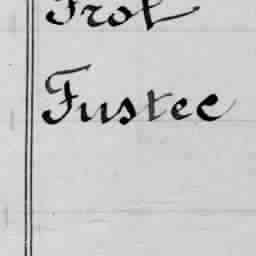 Frot
Fustec